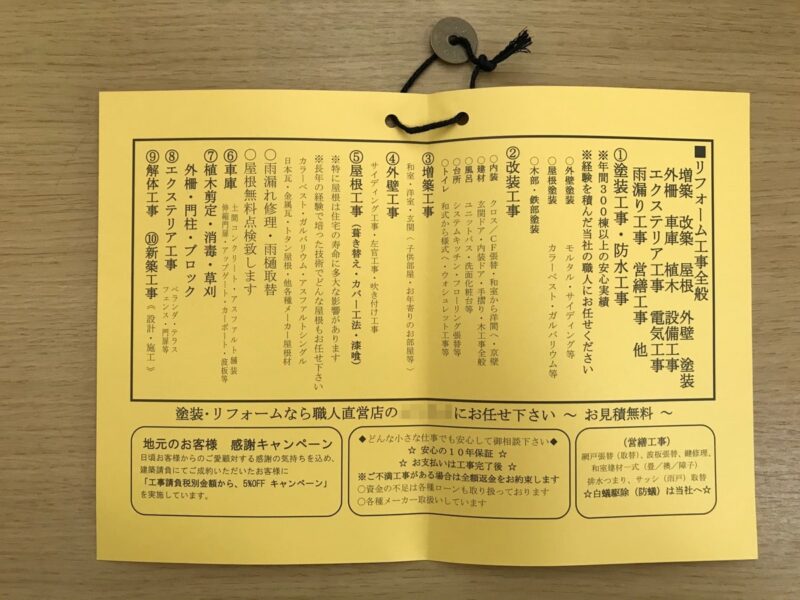 ■リフォーム工事全般
増築 改築 屋根 外壁 塗装
外柵 車庫 植木 設備工事
エクステリア工事 電気工事
雨漏り工事 営繕工事 他
①塗装工事・防水工事
※年間300棟以上の安心実績
※経験を積んだ当社の職人にお任せください
○外壁塗装 モルタル・サイディング等
○屋根塗装 カラーベスト・ガルバリウム等
○木部・鉄部塗装
②改装工事
○内装 クロス/CF張替・和室から洋間へ・京壁
○建材 玄関ドア・内装ドア・手摺り・木工事全般
○風呂 ユニットバス・洗面化粧台等
○台所 システムキッチン・フローリング張替等
○トイレ 和式から様式へ・ウォシュレット工事等
③増築工事
和室・洋室・玄関(子供部屋・お年寄りのお部屋等)
④外壁工事
サイディング工事・左官工事・吹き付け工事
⑤屋根工事(葺き替え・カバー工法・漆喰)
※特に屋根は住宅の寿命に多大な影響があります
※長年の経験で培った技術でどんな屋根もお任せ下さい
カラーベスト・ガルバリウム・アスファルトシングル
日本瓦・金属瓦・トタン屋根・他各種メーカー屋根材
○雨漏れ修理・雨樋取替
○屋根無料点検致します
⑥車庫 土間コンクリート・アスファルト舗装
伸縮門扉・アップゲート・カーポート・波板等
⑦植木剪定・消毒・草刈
外柵・門柱・ブロック
⑧エクステリア工事 ベランダ・テラス
フェンス・門扉等
⑨解体工事 ⑩新築工事《設計・施工》
塗装・リフォームなら職人直営店の にお任せ下さい ～ お見積無料 ～
地元のお客様 感謝キャンペーン
日頃お客様からのご愛顧対する感謝の気持ちを込め、
建築請負にてご成約いただいたお客様に
「工事請負税別金額から、5%OFF キャンペーン」
を実施しています。
◆どんな小さな仕事でも安心して御相談下さい◆
☆ 安心の10年保証 ☆
☆ お支払いは工事完了後 ☆
※ご不満工事がある場合は全額返金をお約束します
○資金の不足は各種ローンも取り扱っております
○各種メーカー取扱いしています
(営繕工事)
網戸張替(取替)、波板張替、鍵修理、
和室建材一式(畳/襖/障子)
排水つまり、サッシ(雨戸)取替
☆白蟻駆除(防蟻)は当社へ☆